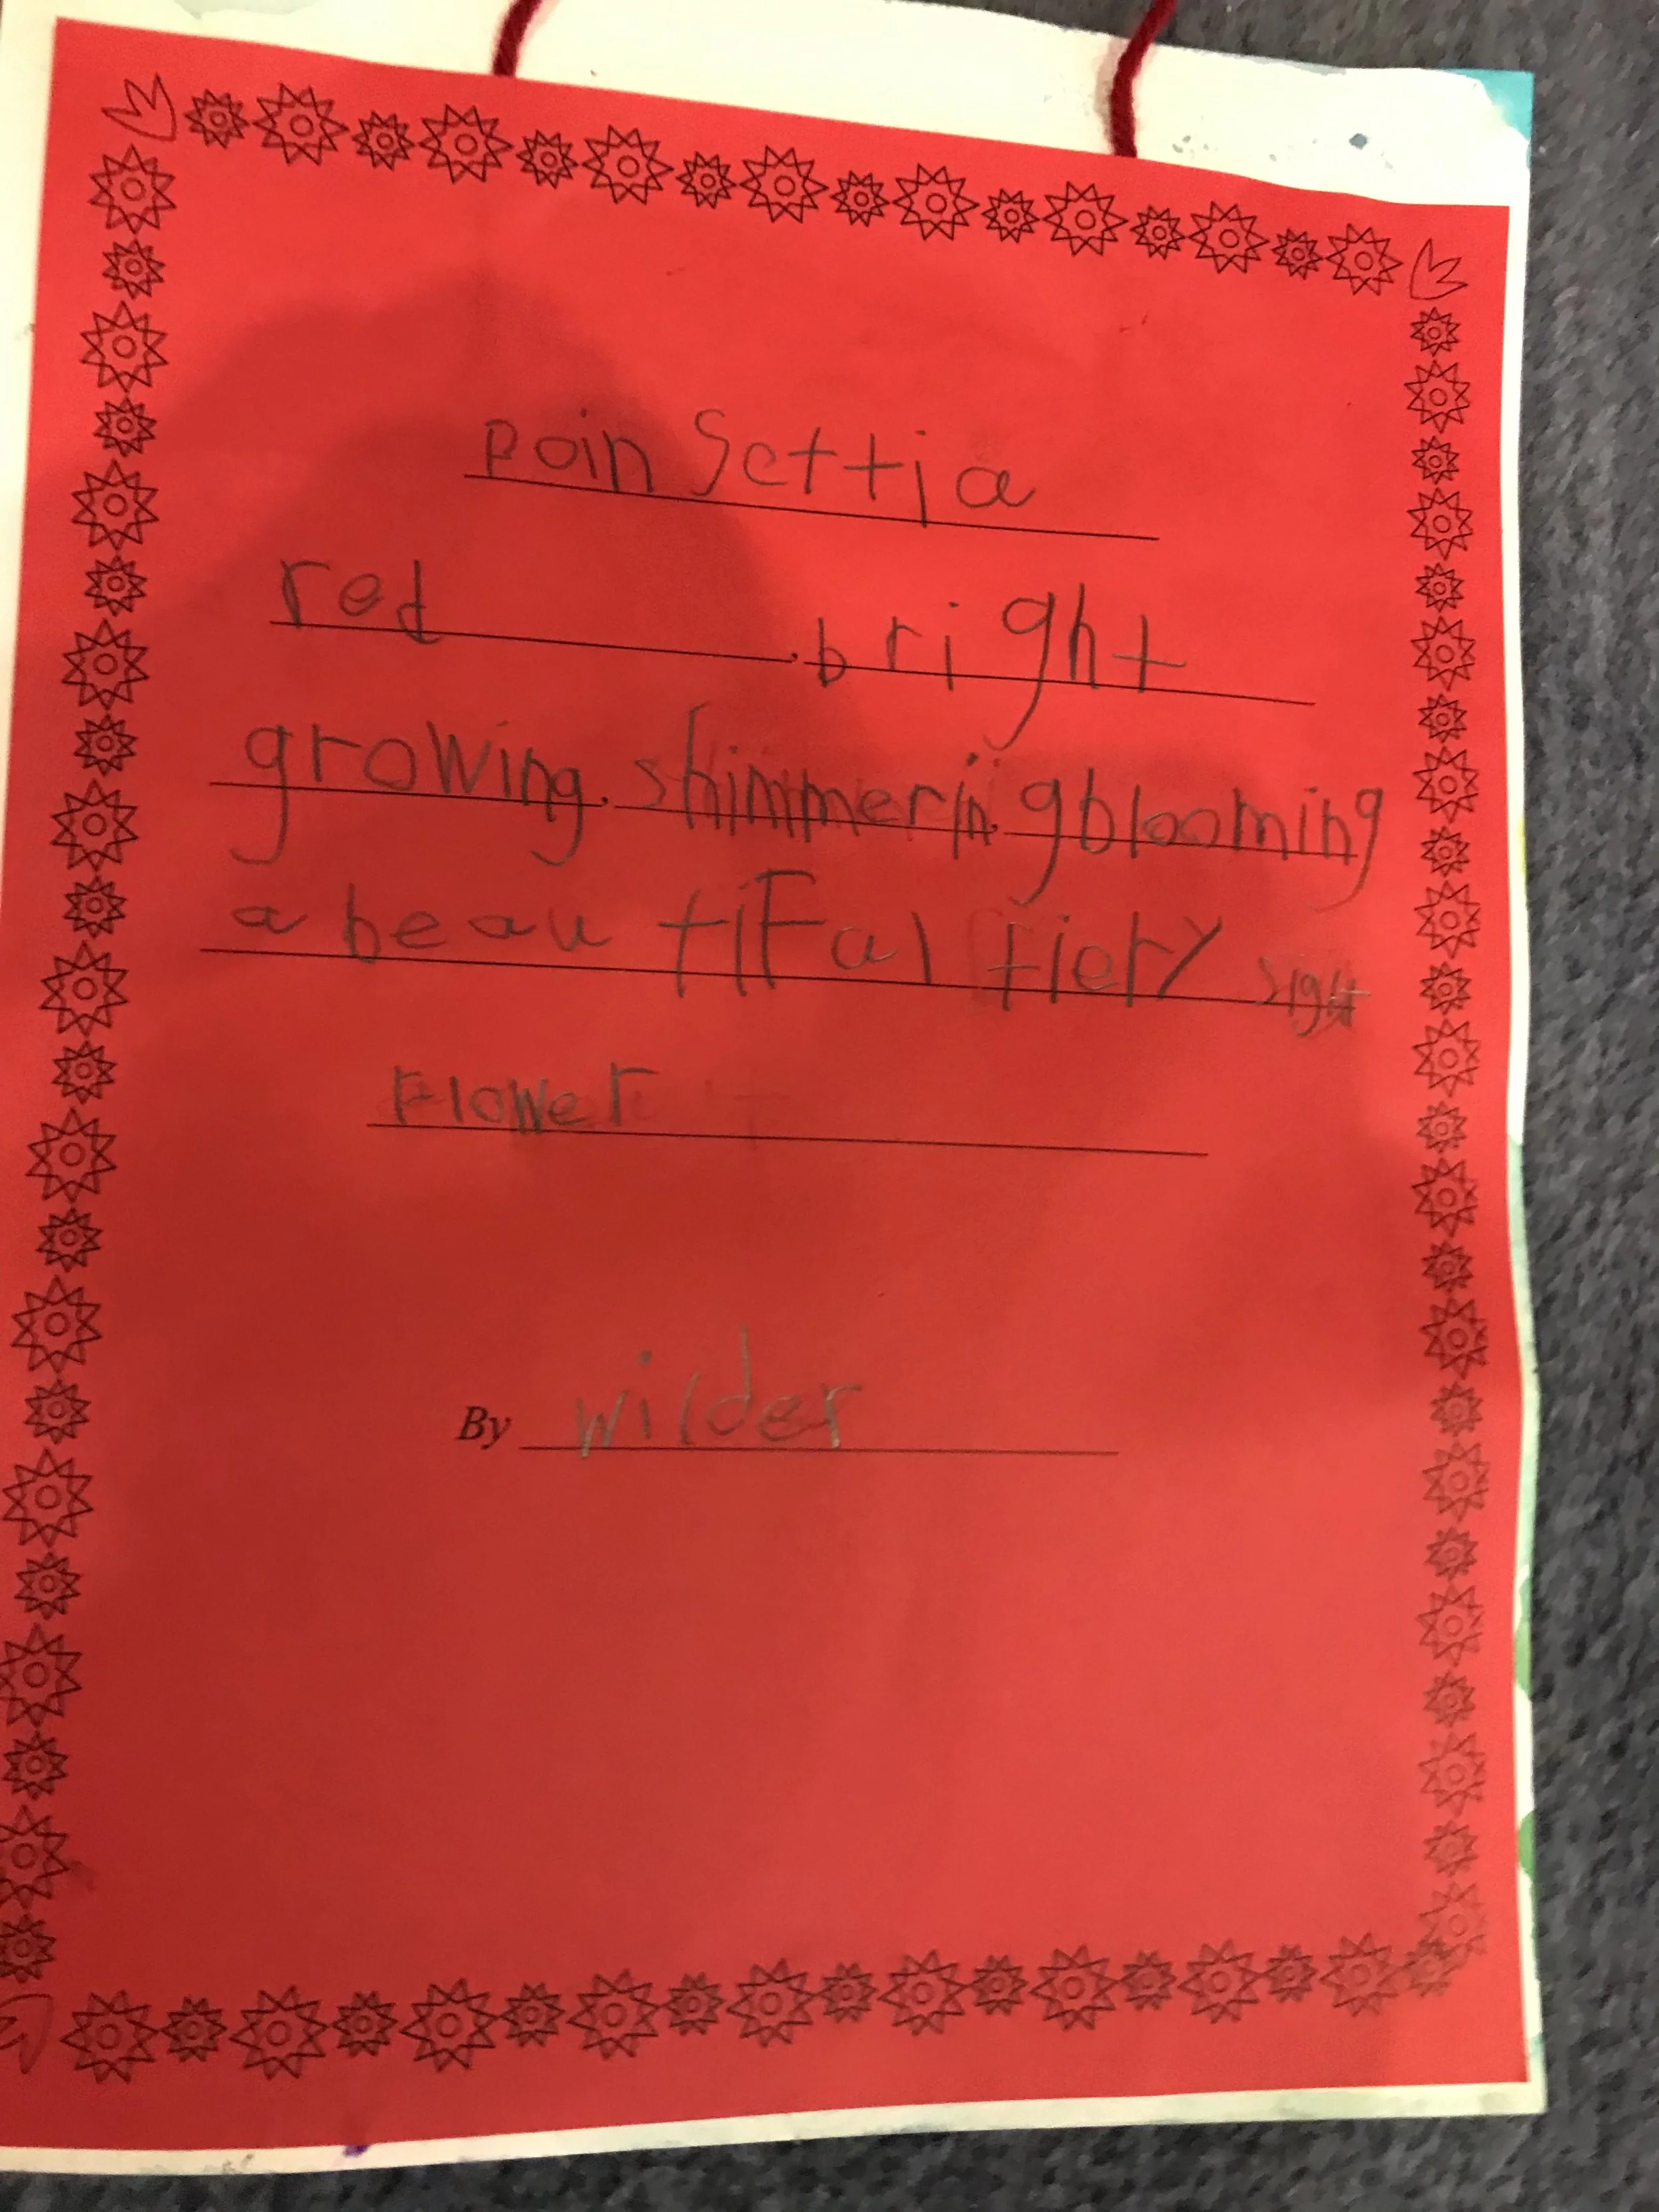 poinsettia
red, bright
growing, shimmering, blooming
a beautifal fiery sight
Flower
By wilder